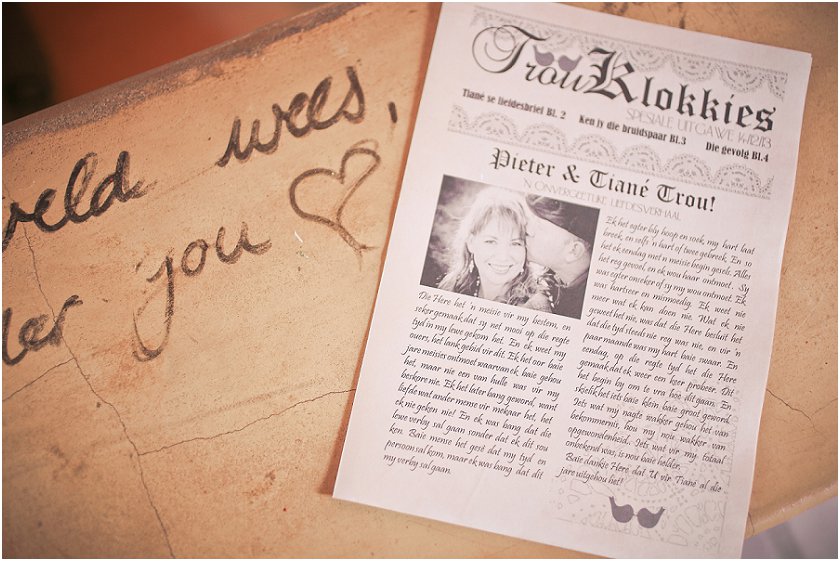 veld wees,
jou
Trou Klokkies
SPESIALE UITGAWE 14/12/13
Tiané se liefdesbrief Bl. 2 Ken jy die bruidspaar Bl.3 Die gevolg Bl.4
Pieter & Tiané Trou!
'N ONVERGEETLIKE LIEFDESVERHAAL
Die Here het 'n meisie vir my bestem, en
seker gemaak dat sy net mooi op die regte
tyd in my lewe gekom het. En ek weet my
ouers, het lank gebid vir dit. Ek het oor baie
jare meisies ontmoet waarvan ek baie gehou
het, maar nie een van hulle was vir my
beskore nie. Ek het later bang geword, want
liefde wat ander mense vir mekaar het, het
ek nie geken nie! En ek was bang dat die
lewe verby sal gaan sonder dat ek dit sou
ken. Baie mense het gesê dat my tyd en
persoon sal kom, maar ek was bang dat dit
my verby sal gaan.
Ek het egter bly hoop en soek, my hart laat
breek, en selfs 'n hart of twee gebreek. En so
het ek eendag met 'n meisie begin gesels. Alles
het reg gevoel, en ek wou haar ontmoet. Sy
was egter onseker of sy my wou ontmoet. Ek
was hartseer en mismoedig. Ek weet nie
meer wat ek kan doen nie. Wat ek nie
geweet het nie, was dat die Here besluit het
dat die tyd steeds nie reg was nie, en vir 'n
paar maande was my hart baie swaar. En
eendag, op die regte tyd het die Here
gemaak dat ek weer een keer probeer. Dit
het begin by om te vra hoe dit gaan. En
skielik het iets baie klein, baie groot geword.
Iets wat my nagte wakker gehou het van
bekommernis, hou my nou wakker van
opgewondenheid. Iets wat vir my totaal
onbekend was, is nou baie helder.
Baie dankie Here dat U vir Tiané al die
jare uitgehou het!